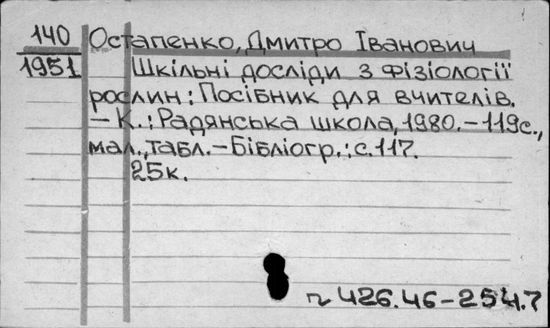 140 Остапенко, Дмитро Іванович
1951 Шкільні досліди з фізіології
рослин: Посібник для вчителів.
– К.: Радянська школа, 1980. – 119с.,
мал., табл. – Бібліогр.: с. 117.
25к.
п 426.46–254.7